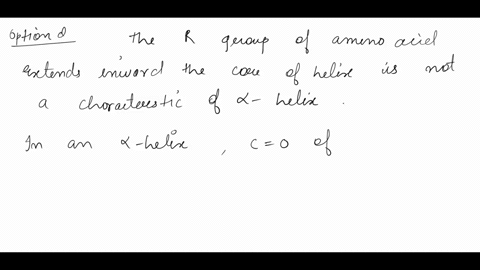 Option d The R group of amino acid
extends inword the core of helix is not
a characteristic of α- helix.
In an α-helix, C=O of